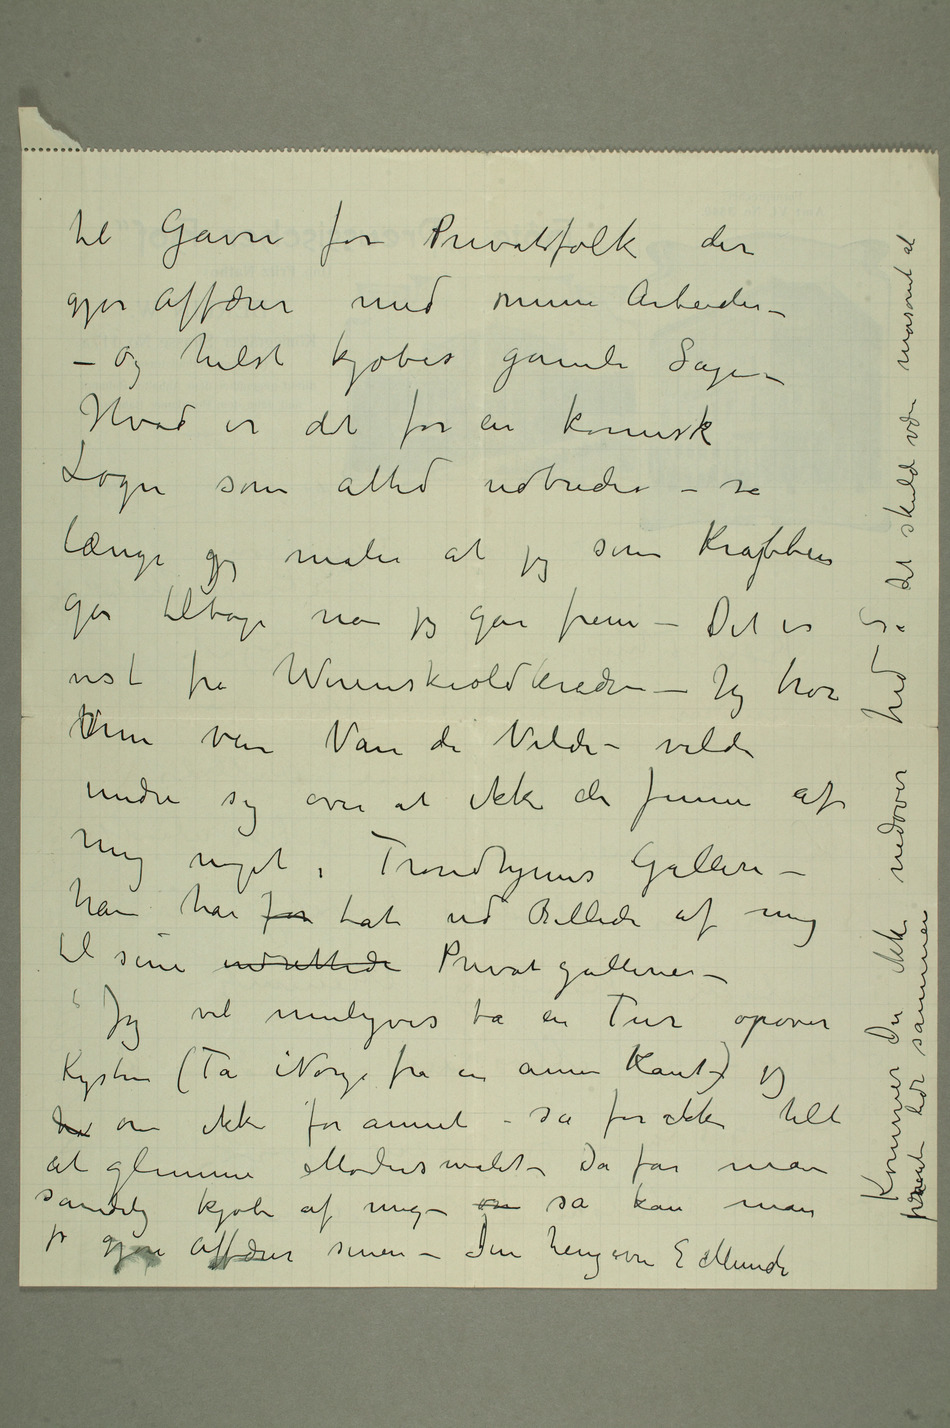 til Gavn for Privatfolk der
gjør Affærer med mine Arbeider –
– og helst kjøbes gamle Sager –
Hvad er det for en komisk
Løgn som altid udbredes – så
længe jeg maler at jeg som Krabben
går tilbage når jeg går frem – Det er
vist fra Werenskioldkredsen – Jeg tror
Min ven Van de Velde – vilde
undre sig over at ikke de finner af
mig noget i Trondhjems Galleri –
han har for tat ud Billeder af mig
til sine indrettede Privatgallerier –
Jeg vil muligvis ta en Tur opover
Kysten (Ta iNorge fra en annen Kant) jeg
om ikke for annet – så for ikke helt
at glemme Modersmålet – Da får man
sandelig kjøbe af mig – om så kan man
jo gjøre Affærer senere – Din hengivne E Munch
Kommer Du ikke nedover hid? Så det skulde være morsomt at
prate her sammen